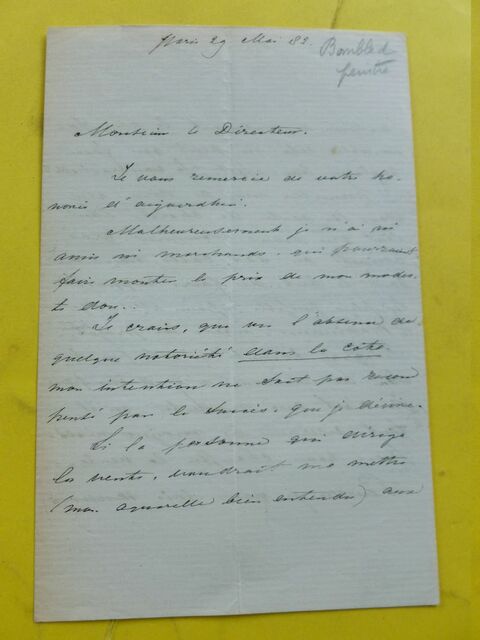 Paris 29 Mai 83.
Bombled
peintre
Monsieur le Directeur.
Je vous remercie de votre ho-
noris d'aujourd'hui.
Malheureusement je n'ai ni
amis ni marchands, qui pourraient
faire monter le prix de mon modes-
te don..
Je crains, que vu l'absence de
quelque notoriété dans la cote
mon intention ne soit pas recom
pensé par le succès, que je désire.
Si la personne qui dirige
les vente, voudrait me mettre
(mon aquarelle bien entendu) aux